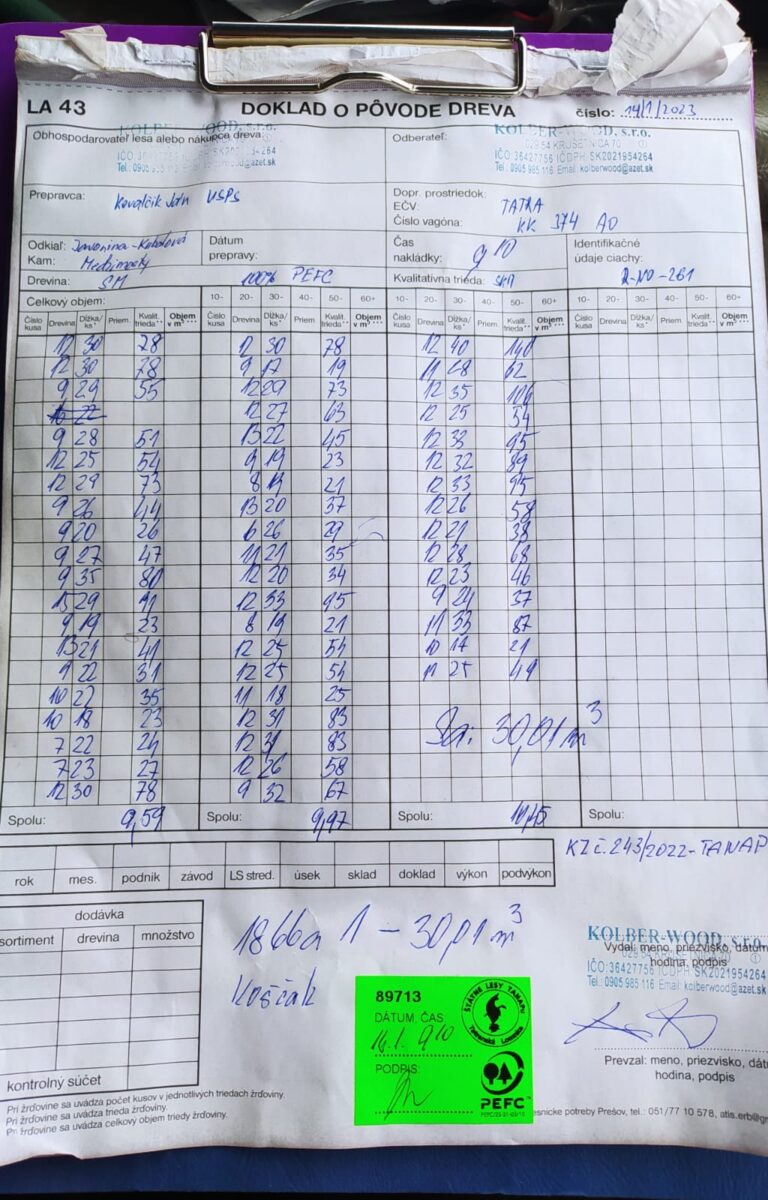 LA 43
DOKLAD O PÔVODE DREVA
číslo: 14/1/2023
Obhospodarovateľ lesa alebo nákupca dreva:
KOLBER-WOOD, s.r.o.
Tel.: 0905 985
@azet.sk
Odberateľ:
KOLBER-WOOD, s.r.o.
029 54 KRUŠETNICA 70
IČO: 36427756 IČDPH: SK2021954264
Tel.: 0905 985 116 Email: kolberwood@azet.sk
Prepravca:
Kovalčik
Dopr. prostriedok:
EČV: TATRA
Číslo vagóna: KK 374 AO
Odkiaľ: Javorina-
Kam:
Dátum
prepravy:
Čas
nakládky: 9 10
Identifikačné
údaje ciachy:
R-NO-261
Drevina: SM
100% PEFC
Kvalitatívna trieda:
Celkový objem:
10- 20- 30- 40- 50- 60+
10- 20- 30- 40- 50- 60+
10- 20- 30- 40- 50- 60+
Číslo kusa Drevina Dĺžka/ks* Priem. Kvalit. trieda** Objem v m³***
Číslo kusa Drevina Dĺžka/ks* Priem. Kvalit. trieda** Objem v m³***
Číslo kusa Drevina Dĺžka/ks* Priem. Kvalit. trieda** Objem v m³***
Číslo kusa Drevina Dĺžka/ks* Priem. Kvalit. trieda** Objem v m³***
12 30 78 12 30 78 12 40 140
12 30 78 9 17 19 11 28 62
9 29 55 12 29 73 12 35 106
12 27 63 12 25 54
9 28 51 13 22 45 12 33 95
12 25 54 9 19 23 12 32 89
12 29 73 8 19 21 12 33 95
9 26 44 13 20 37 12 26 58
9 20 26 6 26 29 12 21 38
9 27 47 11 21 35 12 28 68
9 35 80 12 20 34 12 23 46
29 12 33 95 9 24 37
9 19 23 8 19 21 11 33 87
13 21 41 12 25 54 10 17 21
9 22 31 12 25 54 11 25 49
10 22 35 11 18 25
10 18 23 12 31 83
7 22 24 12 31 83
7 23 27 12 26 58
12 30 78 9 32 67
30,01 m³
Spolu: 9,59
Spolu: 9,97
Spolu: 10,45
Spolu:
KZ č. 243/2022-TANAP
rok mes. podnik závod LS stred. úsek sklad doklad výkon podvýkon
dodávka
sortiment drevina množstvo
kontrolný súčet
1866a 1 – 30,01 m³
Koščak
89713
DÁTUM, ČAS
14.1. 9 10
PODPIS
ŠTÁTNE LESY TANAPU
Tatranská Lomnica
PEFC
KOLBER-WOOD, s.r.o.
Vydal: meno, priezvisko, dátum
hodina, podpis
029 54 KRUŠETNICA 70
IČO: 36427756 IČDPH: SK2021954264
Tel.: 0905 985 116 Email: kolberwood@azet.sk
Prevzal: meno, priezvisko,
hodina, podpis
Pri žrďovine sa uvádza počet kusov v jednotlivých triedach žrďoviny.
Pri žrďovine sa uvádza trieda žrďoviny.
Pri žrďovine sa uvádza celkový objem triedy žrďoviny.
potreby Prešov, tel.: 051/77 10 578,